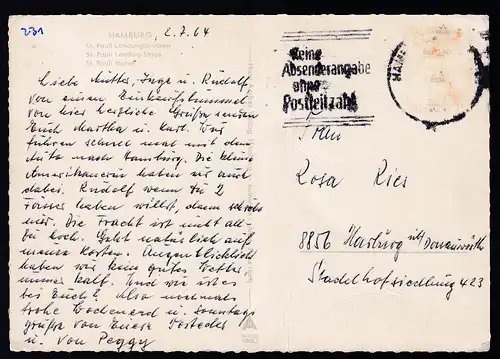 231
HAMBURG, 2.7.64
St. Pauli Landungsbrücken
St. Pauli Landing Stage
St. Pauli Hafen
Liebe Mutter, Inge u. Rudolf
von einem Einkaufsbummel
von hier herzliche Grüße senden
Euch Martha u. Karl. Wir
fuhren schnell mal mit dem
Auto nach Hamburg. Die kleine
Amerikanerin haben wir auch
dabei. Rudolf wenn Du 2
Fässer haben willst, dann schreib
mir. Die Fracht ist nicht all-
zu hoch. Geht natürlich auf
meine Kosten. Augenblicklich
haben wir kein gutes Wetter
immer kalt. Und wie ist es
bei Euch? Also nochmals
frohe Wochenend u. Sonntags
grüße von Eure
u. von Peggy
Keine
Absenderangabe
ohne
Postleitzahl
HAM
Rosa Ries
8856 Harburg üb/Donauwörth
Stadelhofsiedlung 423